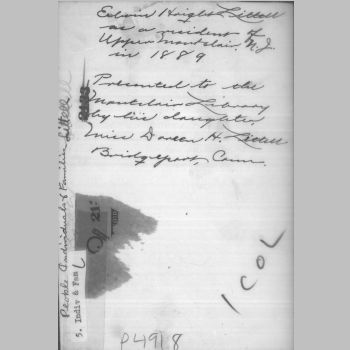 Edwin Haight Littell
as a resident of
Upper Montclair, N.J.
in 1889
Presented to the
Montclair Library
by his daughter,
Miss H. Littell
Bridgeport, Conn.
People Individuals & Families Littell
5. Indiv & Fam L
21:
1 COL
P4918